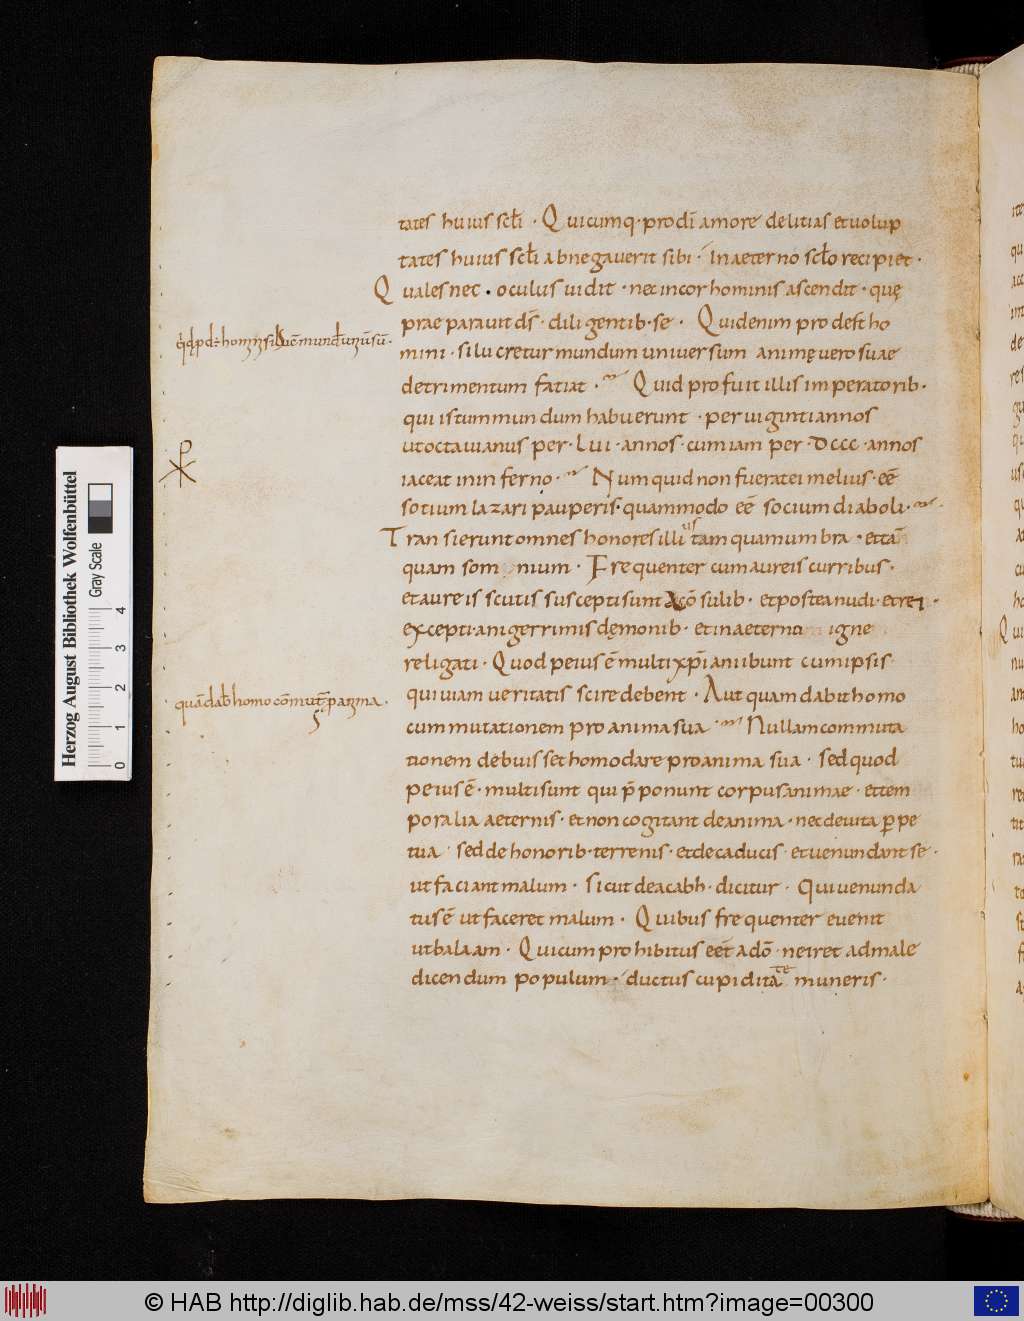 tates huius scłi · Quicumq· prodī amore delitias et volup
tates huius scłi abnegaverit sibi · In aeterno scło recipiet ·
Quales nec · oculus uidit · nec in cor hominis ascendit · quę
prae parauit dſ̄ · diligentib· se · Quid enim prodest ho
mini · si lucretur mundum universum animę vero suae
detrimentum fatiat · Quid profuit illis imperatorib·
qui istum mundum habuerunt · per uiginti annos
ut octauianus per · lui · annos · cum iam per · dccc · annos
iaceat in inferno · Numquid non fuerat ei melius · eē
sotium lazari pauperis · quam modo eē socium diaboli ·
Transierunt omnes honores illius tamquam umbra · et tā
quam somnium · Frequenter cum aureis curribus ·
et aureis scutis suscepti sunt a cōsulib· et postea nudi · et rei ·
excepti · a nigerrimis dęmonib· et in aeterno igne
religati · Quod peius ē multi xp̄iani ibunt cum ipsis
qui uiam ueritatis scire debent · Aut quam dabit homo
cummutationem pro anima sua · Nullam commuta
tionem debuisset homo dare pro anima sua · sed quod
peius ē · multi sunt qui p̄ponunt corpus animae · et tem
poralia aeternis · et non cogitant de anima · nec de uita ꝑpe
tua · sed de honorib· terrenis · et de caducis · et uenundant se ·
ut faciant malum · sicut de acabh · dicitur · Qui uenunda
tus ē ut faceret malum · Quibus frequenter euenit
ut balaam · Qui cum prohibitus eēt a dō · ne iret ad male
dicendum populum · ductus cupiditate muneris ·
quā dab homo cōmut p anima ·
Herzog August Bibliothek Wolfenbüttel
Gray Scale
0 1 2 3 4
© HAB http://diglib.hab.de/mss/42-weiss/start.htm?image=00300